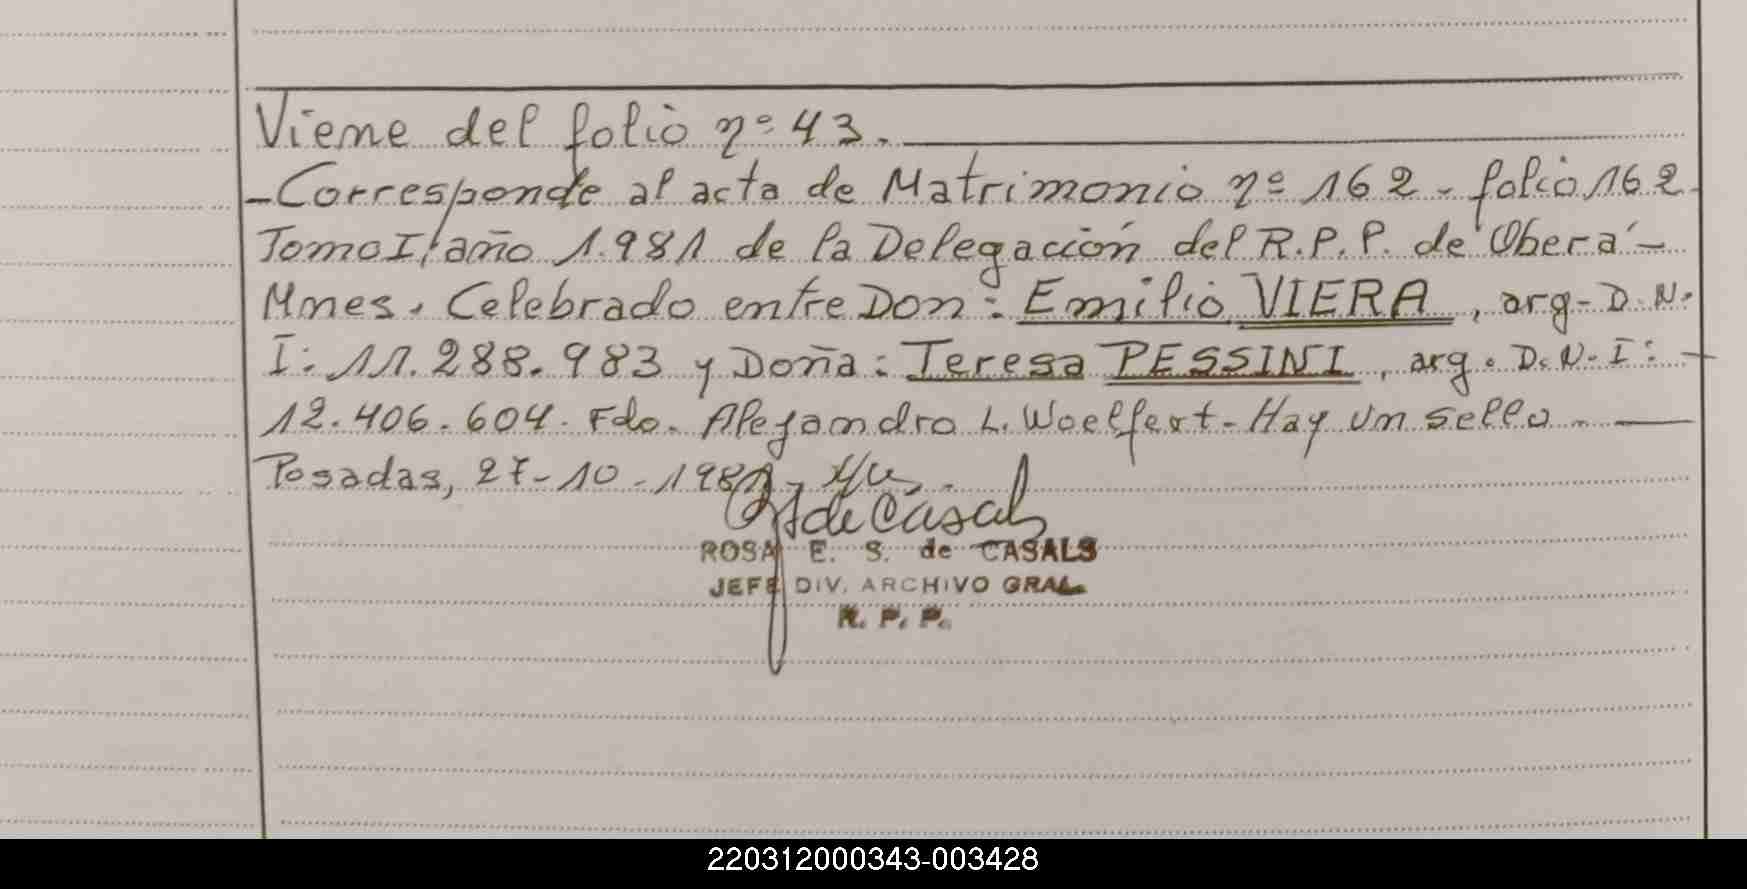 Viene del folio nº 43.
-Corresponde al acta de Matrimonio nº 162 - folio 162-
Tomo I, año 1.981 de la Delegación del R.P.P. de Oberá-
Mnes. Celebrado entre Don: Emilio VIERA, arg-D.N.
I: 11.288.983 y Doña: Teresa PESSINI, arg. D.N.I: -
12.406.604. Fdo. Alejandro L. Woelfert- Hay un sello.
Posadas, 27-10-198
de Casals
ROSA E. S. de CASALS
JEFE DIV. ARCHIVO GRAL.
R. P. P.
220312000343-003428